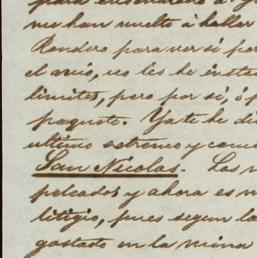 me han vuelto á hallar
Rendero para ver si por
el avió, no les he insta
limites, pero por si, ó p
paquete. Ya te he di
ultimo estremo y como
San Nicolas. Las m
peleados y ahora es m
litigio, pues segun la
gastado en la mina